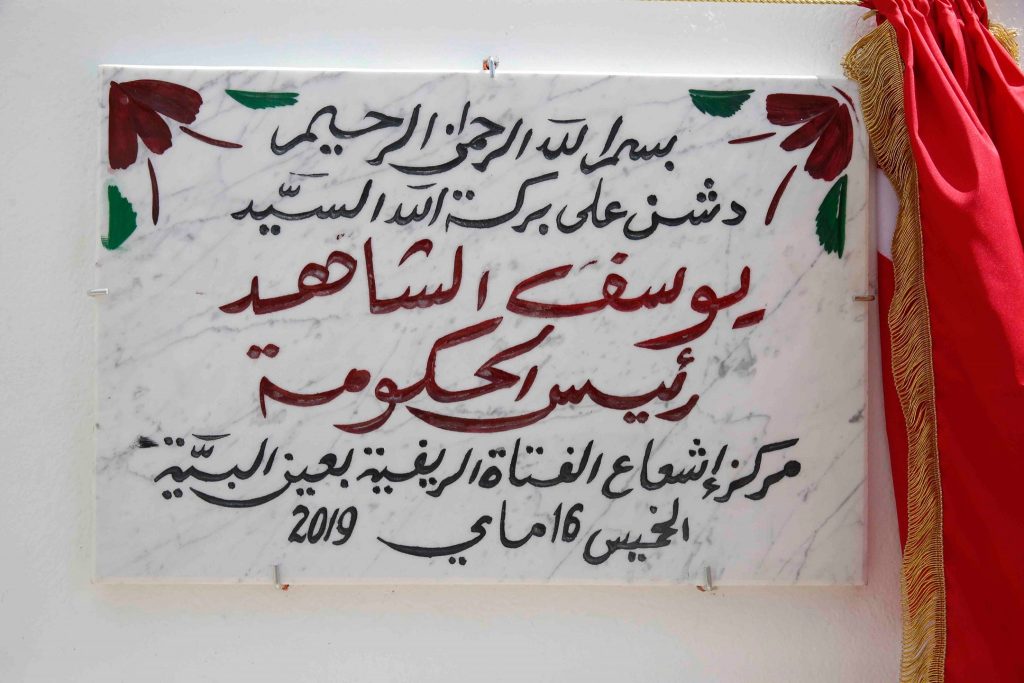 بسم الله الرحمن الرحيم
دشن على بركة الله السيَّد
يوسف الشاهد
رئيس الحكومة
مركز إشعاع الفتاة الريفية بعين البيَّة
الخميس 16 ماي 2019